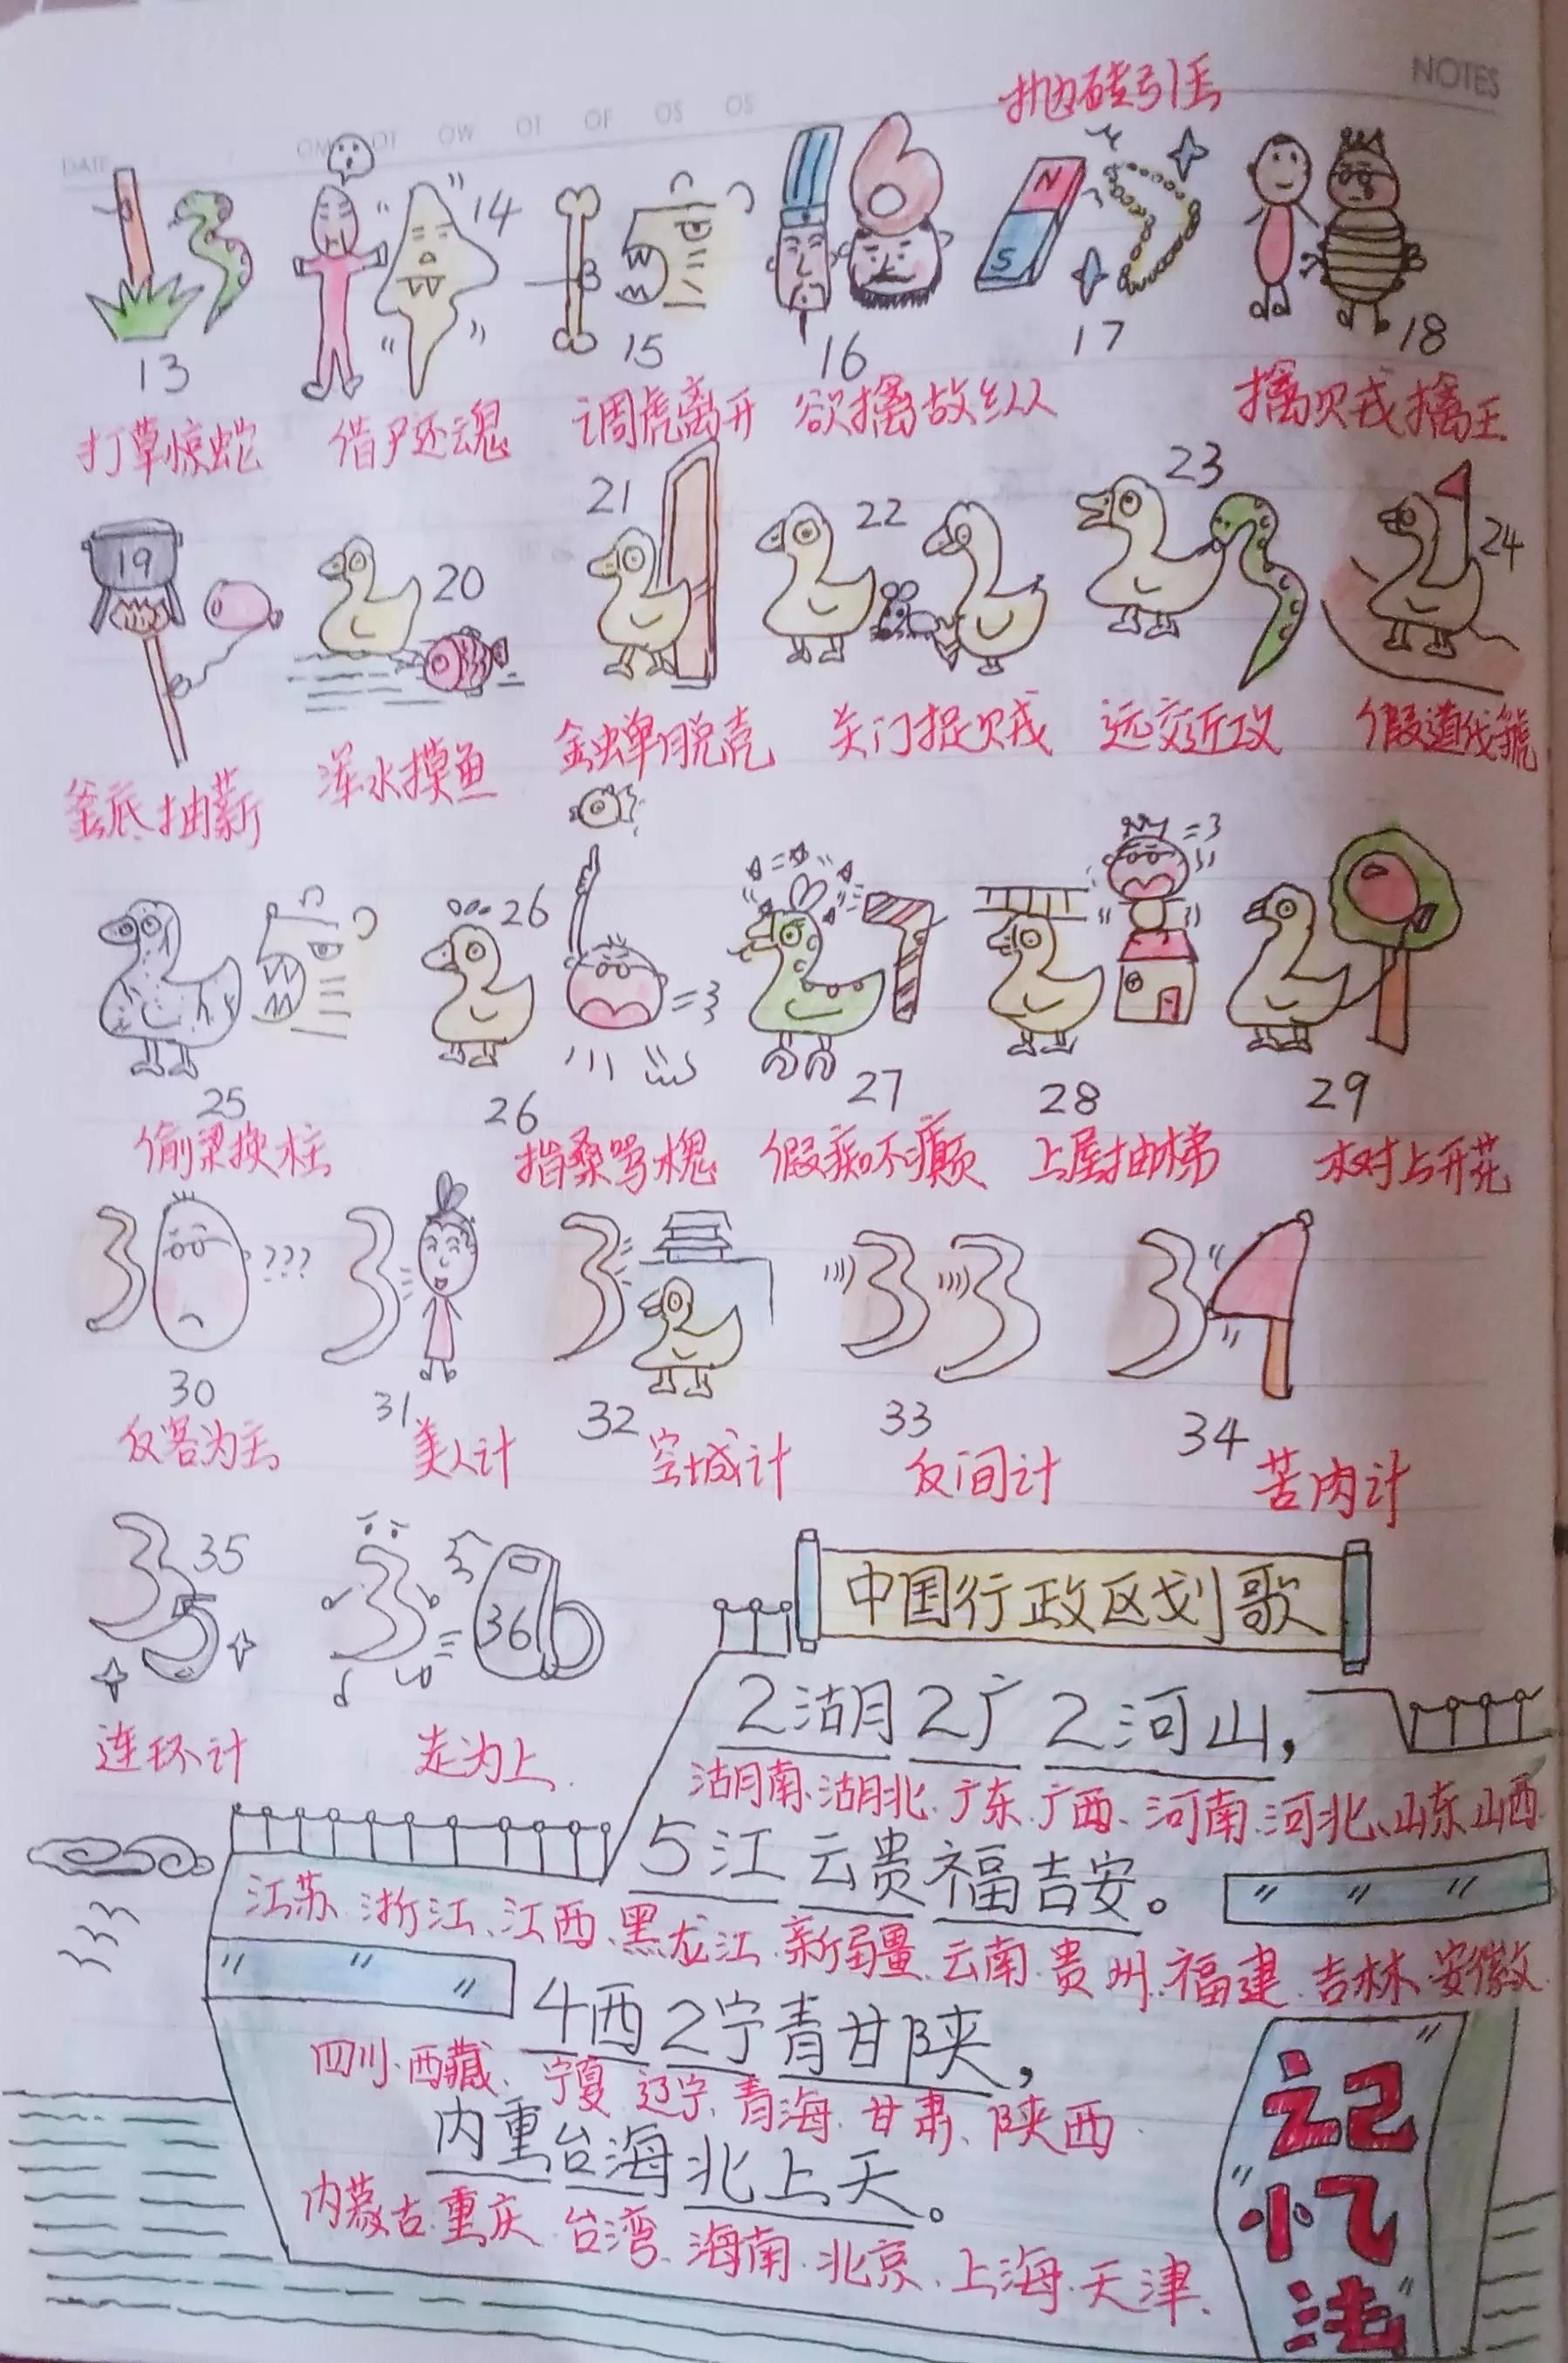 NOTES
DATE
抛砖引玉
N
S
13 14 15 16 17 18
打草惊蛇 借尸还魂 调虎离开 欲擒故纵 擒贼擒王
19 20 21 22 23 24
釜底抽薪 浑水摸鱼 金蝉脱壳 关门捉贼 远交近攻 假道伐虢
26
=3
=3
25 26 27 28 29
偷梁换柱 指桑骂槐 假痴不癫 上屋抽梯 树上开花
???
30 31 32 33 34
反客为主 美人计 空城计 反间计 苦肉计
35 36
连环计 走为上
中国行政区划歌
2湖2广2河山，
湖南、湖北、广东、广西、河南、河北、山东、山西
5江云贵福吉安。
江苏、浙江、江西、黑龙江、新疆、云南、贵州、福建、吉林、安徽
4西2宁青甘陕，
四川、西藏、宁夏、辽宁、青海、甘肃、陕西
内重台海北上天。
内蒙古、重庆、台湾、海南、北京、上海、天津、
记忆法